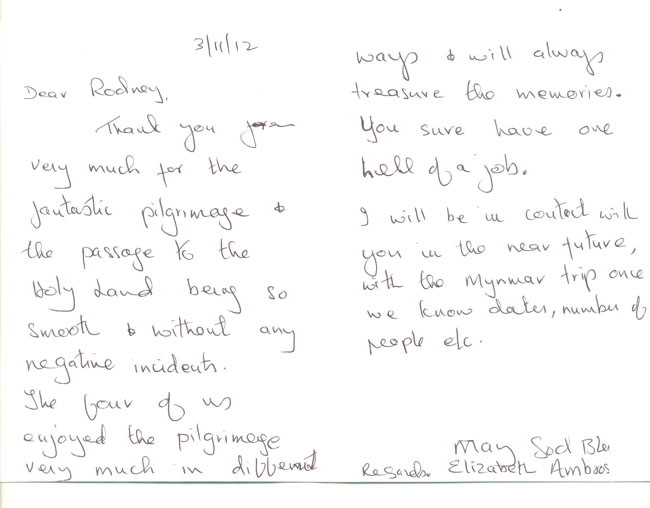 3/11/12
Dear Rodney,
Thank you
very much for the
fantastic pilgrimage &
the passage to the
Holy Land being so
smooth & without any
negative incidents.
The four of us
enjoyed the pilgrimage
very much in different
ways & will always
treasure the memories.
You sure have one
hell of a job.
I will be in contact with
you in the near future,
with the Mynmar trip once
we know dates, number of
people etc.
May God Bless
Regards. Elizabeth Amboos